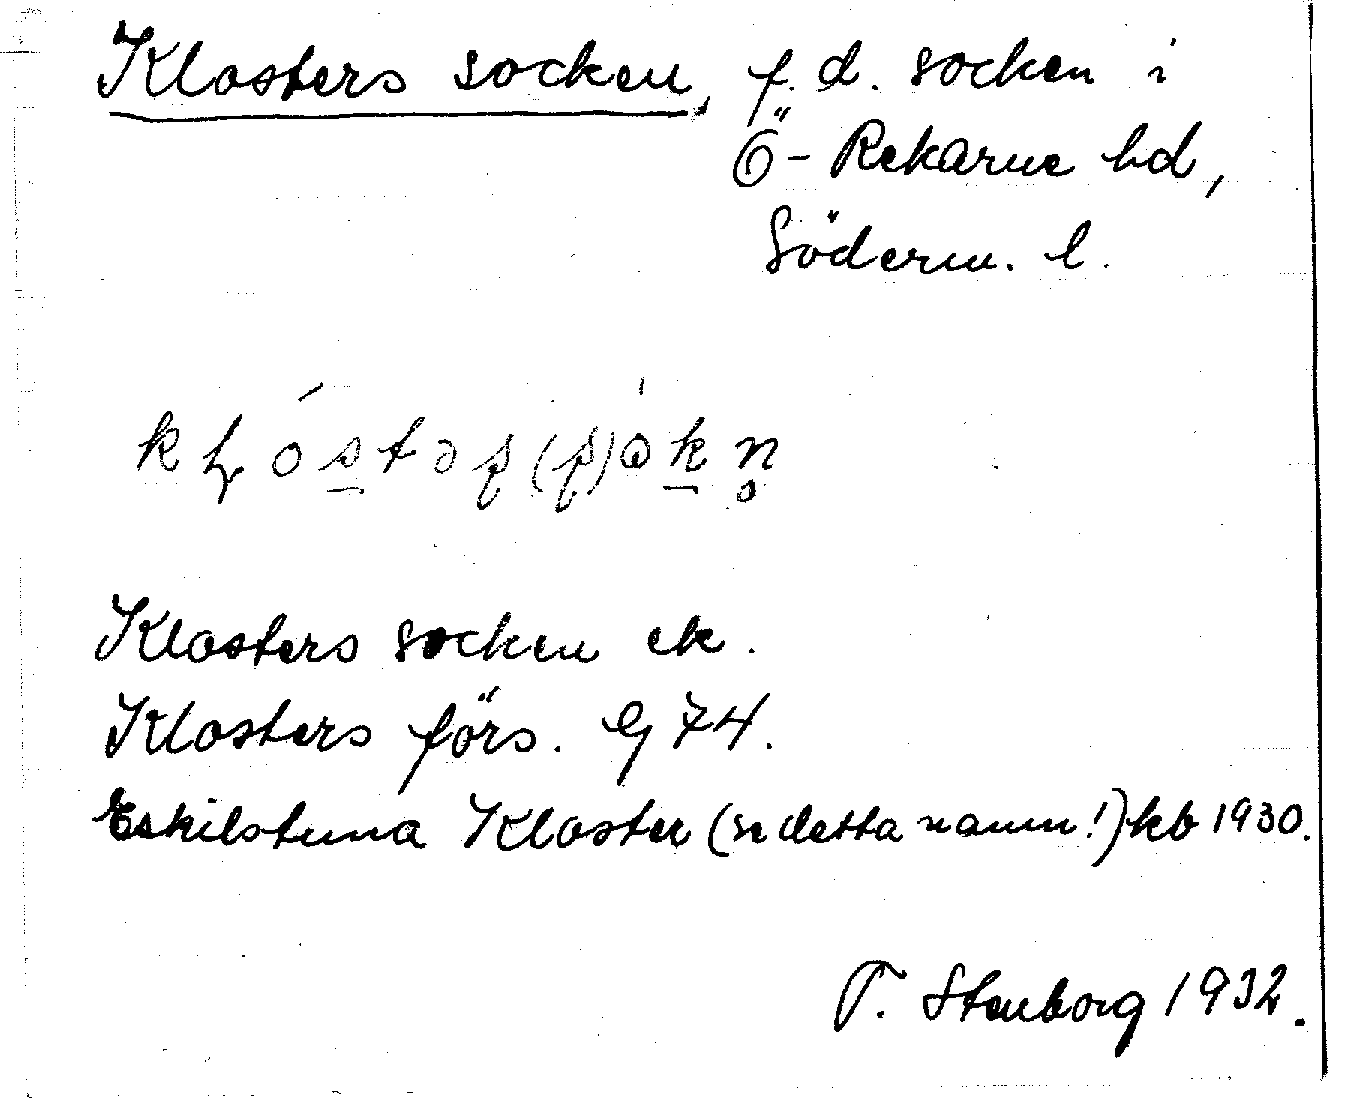 Klosters socken, f.d. socken i
Ö-Rekarne hd,
Söderm. l.
Klosters socken ek.
Klosters förs. Gj 74.
Eskilstuna Kloster (se detta namn!) kb 1930.
T. Stenborg 1932.